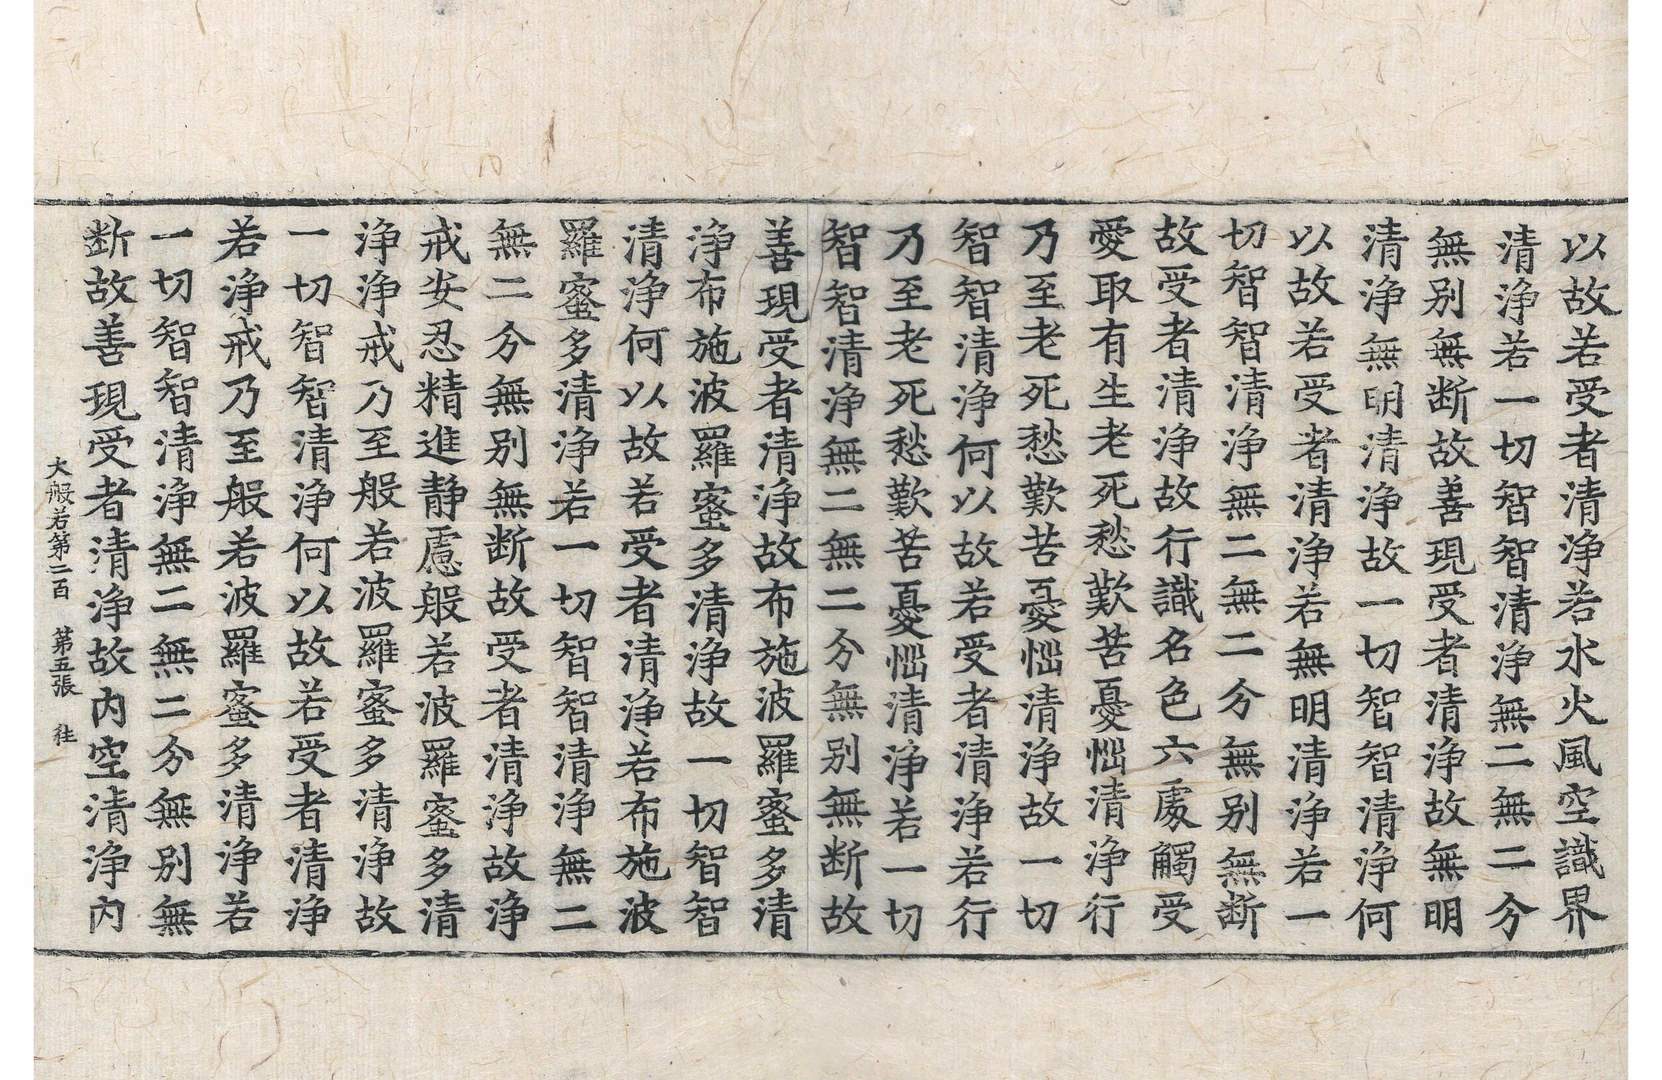 以故若受者清浄若水火風空識界
清浄若一切智智清浄無二無二分
無别無断故善現受者清浄故無明
清浄無明清浄故一切智智清浄何
以故若受者清浄若無明清浄若一
切智智清浄無二無二分無别無断
故受者清浄故行識名色六處觸受
愛取有生老死愁歎苦憂惱清浄行
乃至老死愁歎苦憂惱清浄故一切
智智清浄何以故若受者清浄若行
乃至老死愁歎苦憂惱清浄若一切
智智清浄無二無二分無别無断故
善現受者清浄故布施波羅蜜多清
浄布施波羅蜜多清浄故一切智智
清浄何以故若受者清浄若布施波
羅蜜多清浄若一切智智清浄無二
無二分無别無断故受者清浄故浄
戒安忍精進静慮般若波羅蜜多清
浄浄戒乃至般若波羅蜜多清浄故
一切智智清浄何以故若受者清浄
若浄戒乃至般若波羅蜜多清浄若
一切智智清浄無二無二分無别無
断故善現受者清浄故内空清浄内
大般若第二百 第五張